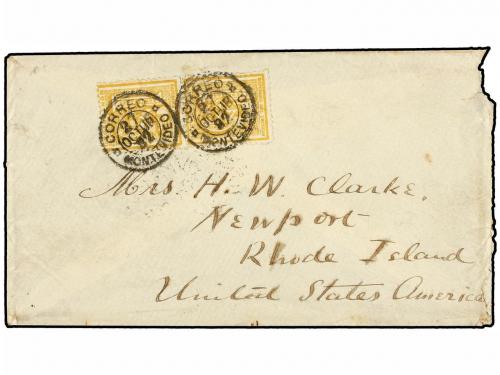 CORREO
OCT 16
MONTEVIDEO
CORREO
OCT 16
MONTEVIDEO
Mrs. H. W. Clarke.
Newport
Rhode Island
United States America